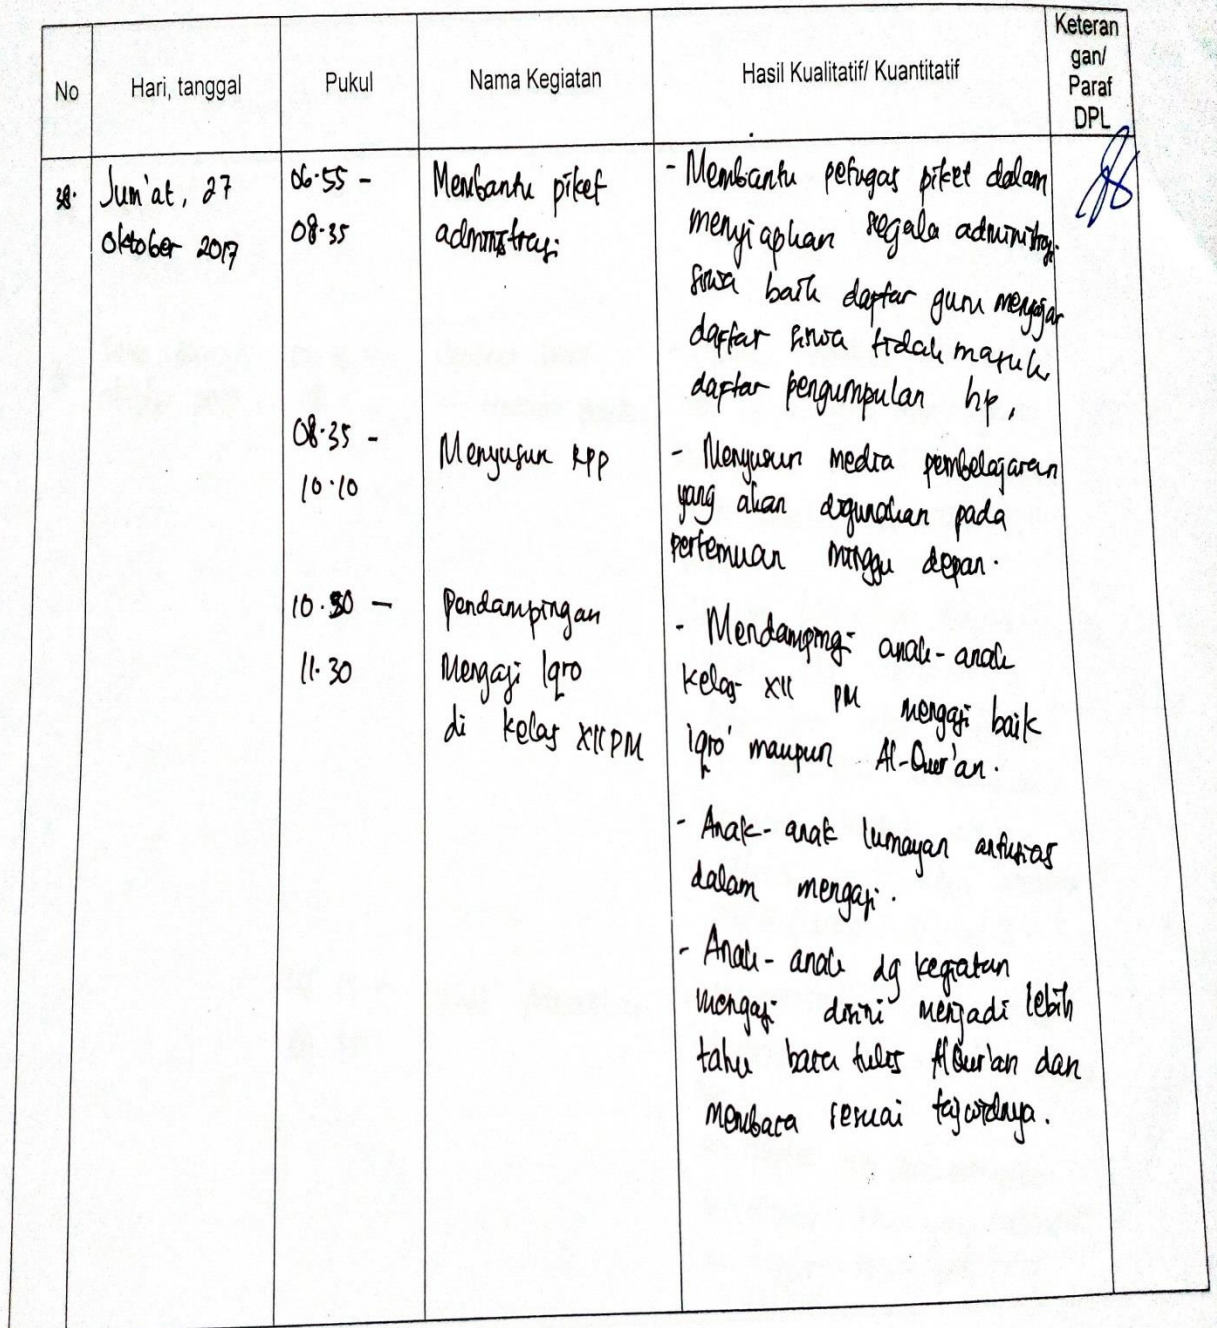 No
Hari, tanggal
Pukul
Nama Kegiatan
Hasil Kualitatif/ Kuantitatif
Keteran
gan/
Paraf
DPL
38.
Jum'at, 27
Oktober 2017
06.55 -
08.35
Membantu piket
administrasi
- Membantu petugas piket dalam
menyiapkan segala administrasi
siswa baik daftar guru mengajar
daftar siswa tidak masuk,
daftar pengumpulan hp.
08.35 -
10.10
Menyusun RPP
- Menyusun media pembelajaran
yang akan digunakan pada
pertemuan minggu depan.
10.30 -
11.30
Pendampingan
Mengaji Iqro
di kelas XII PM
- Mendampingi anak-anak
kelas XII PM mengaji baik
iqro' maupun Al-Qur'an.
- Anak-anak lumayan antusias
dalam mengaji.
- Anak-anak dg kegiatan
mengaji disini menjadi lebih
tahu baca tulis AlQur'an dan
membaca sesuai tajwidnya.